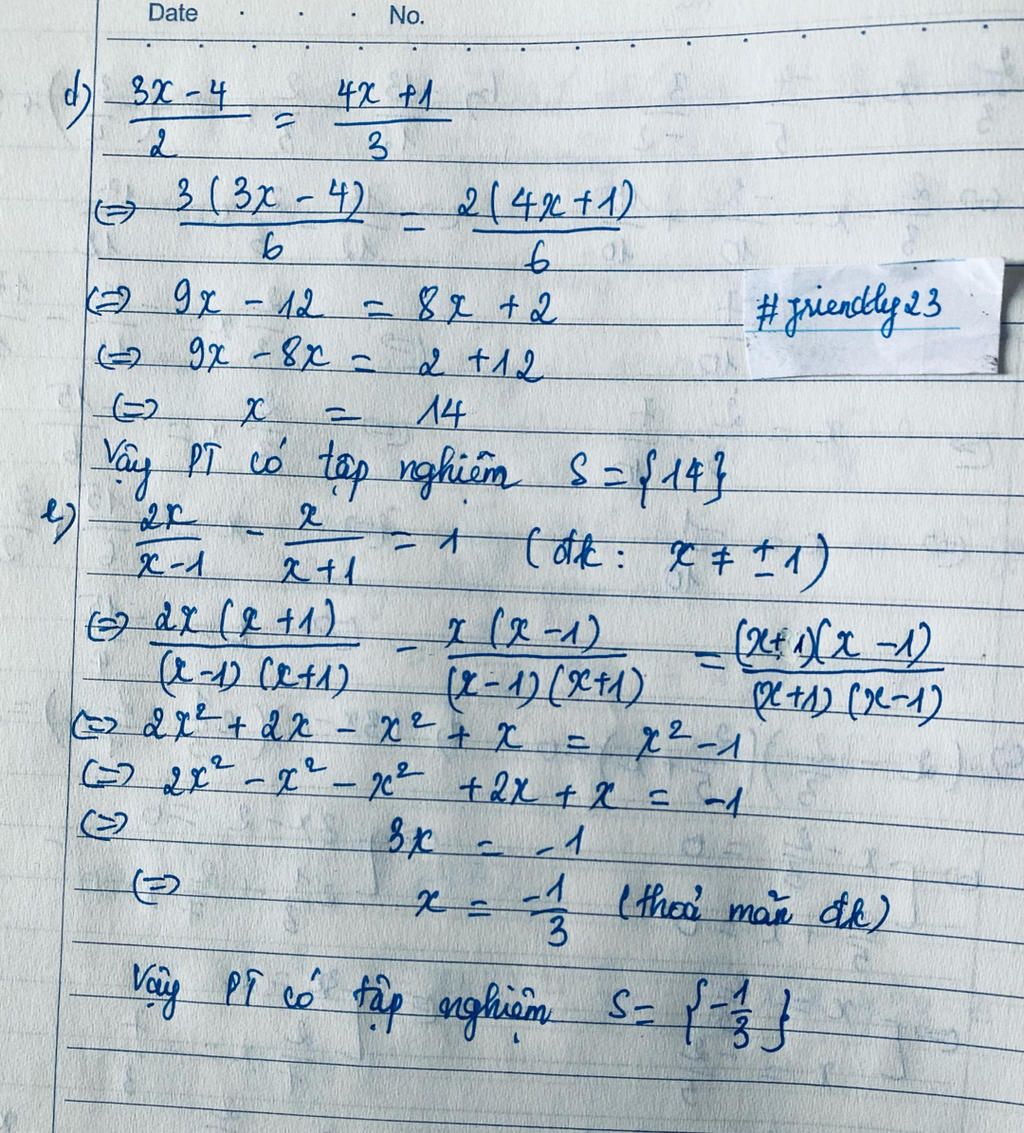 Date No.
d) (3x - 4)/2 = (4x + 1)/3
<=> 3(3x - 4)/6 = 2(4x + 1)/6
<=> 9x - 12 = 8x + 2
#friendly23
<=> 9x - 8x = 2 + 12
<=> x = 14
Vậy PT có tập nghiệm S = {14}
e) 2x/(x - 1) - x/(x + 1) = 1 (đk: x ≠ ± 1)
<=> 2x(x + 1)/(x - 1)(x + 1) - x(x - 1)/(x - 1)(x + 1) = (x + 1)(x - 1)/(x + 1)(x - 1)
<=> 2x² + 2x - x² + x = x² - 1
<=> 2x² - x² - x² + 2x + x = -1
<=> 3x = -1
<=> x = -1/3 (thoả mãn đk)
Vậy PT có tập nghiệm S = {-1/3}